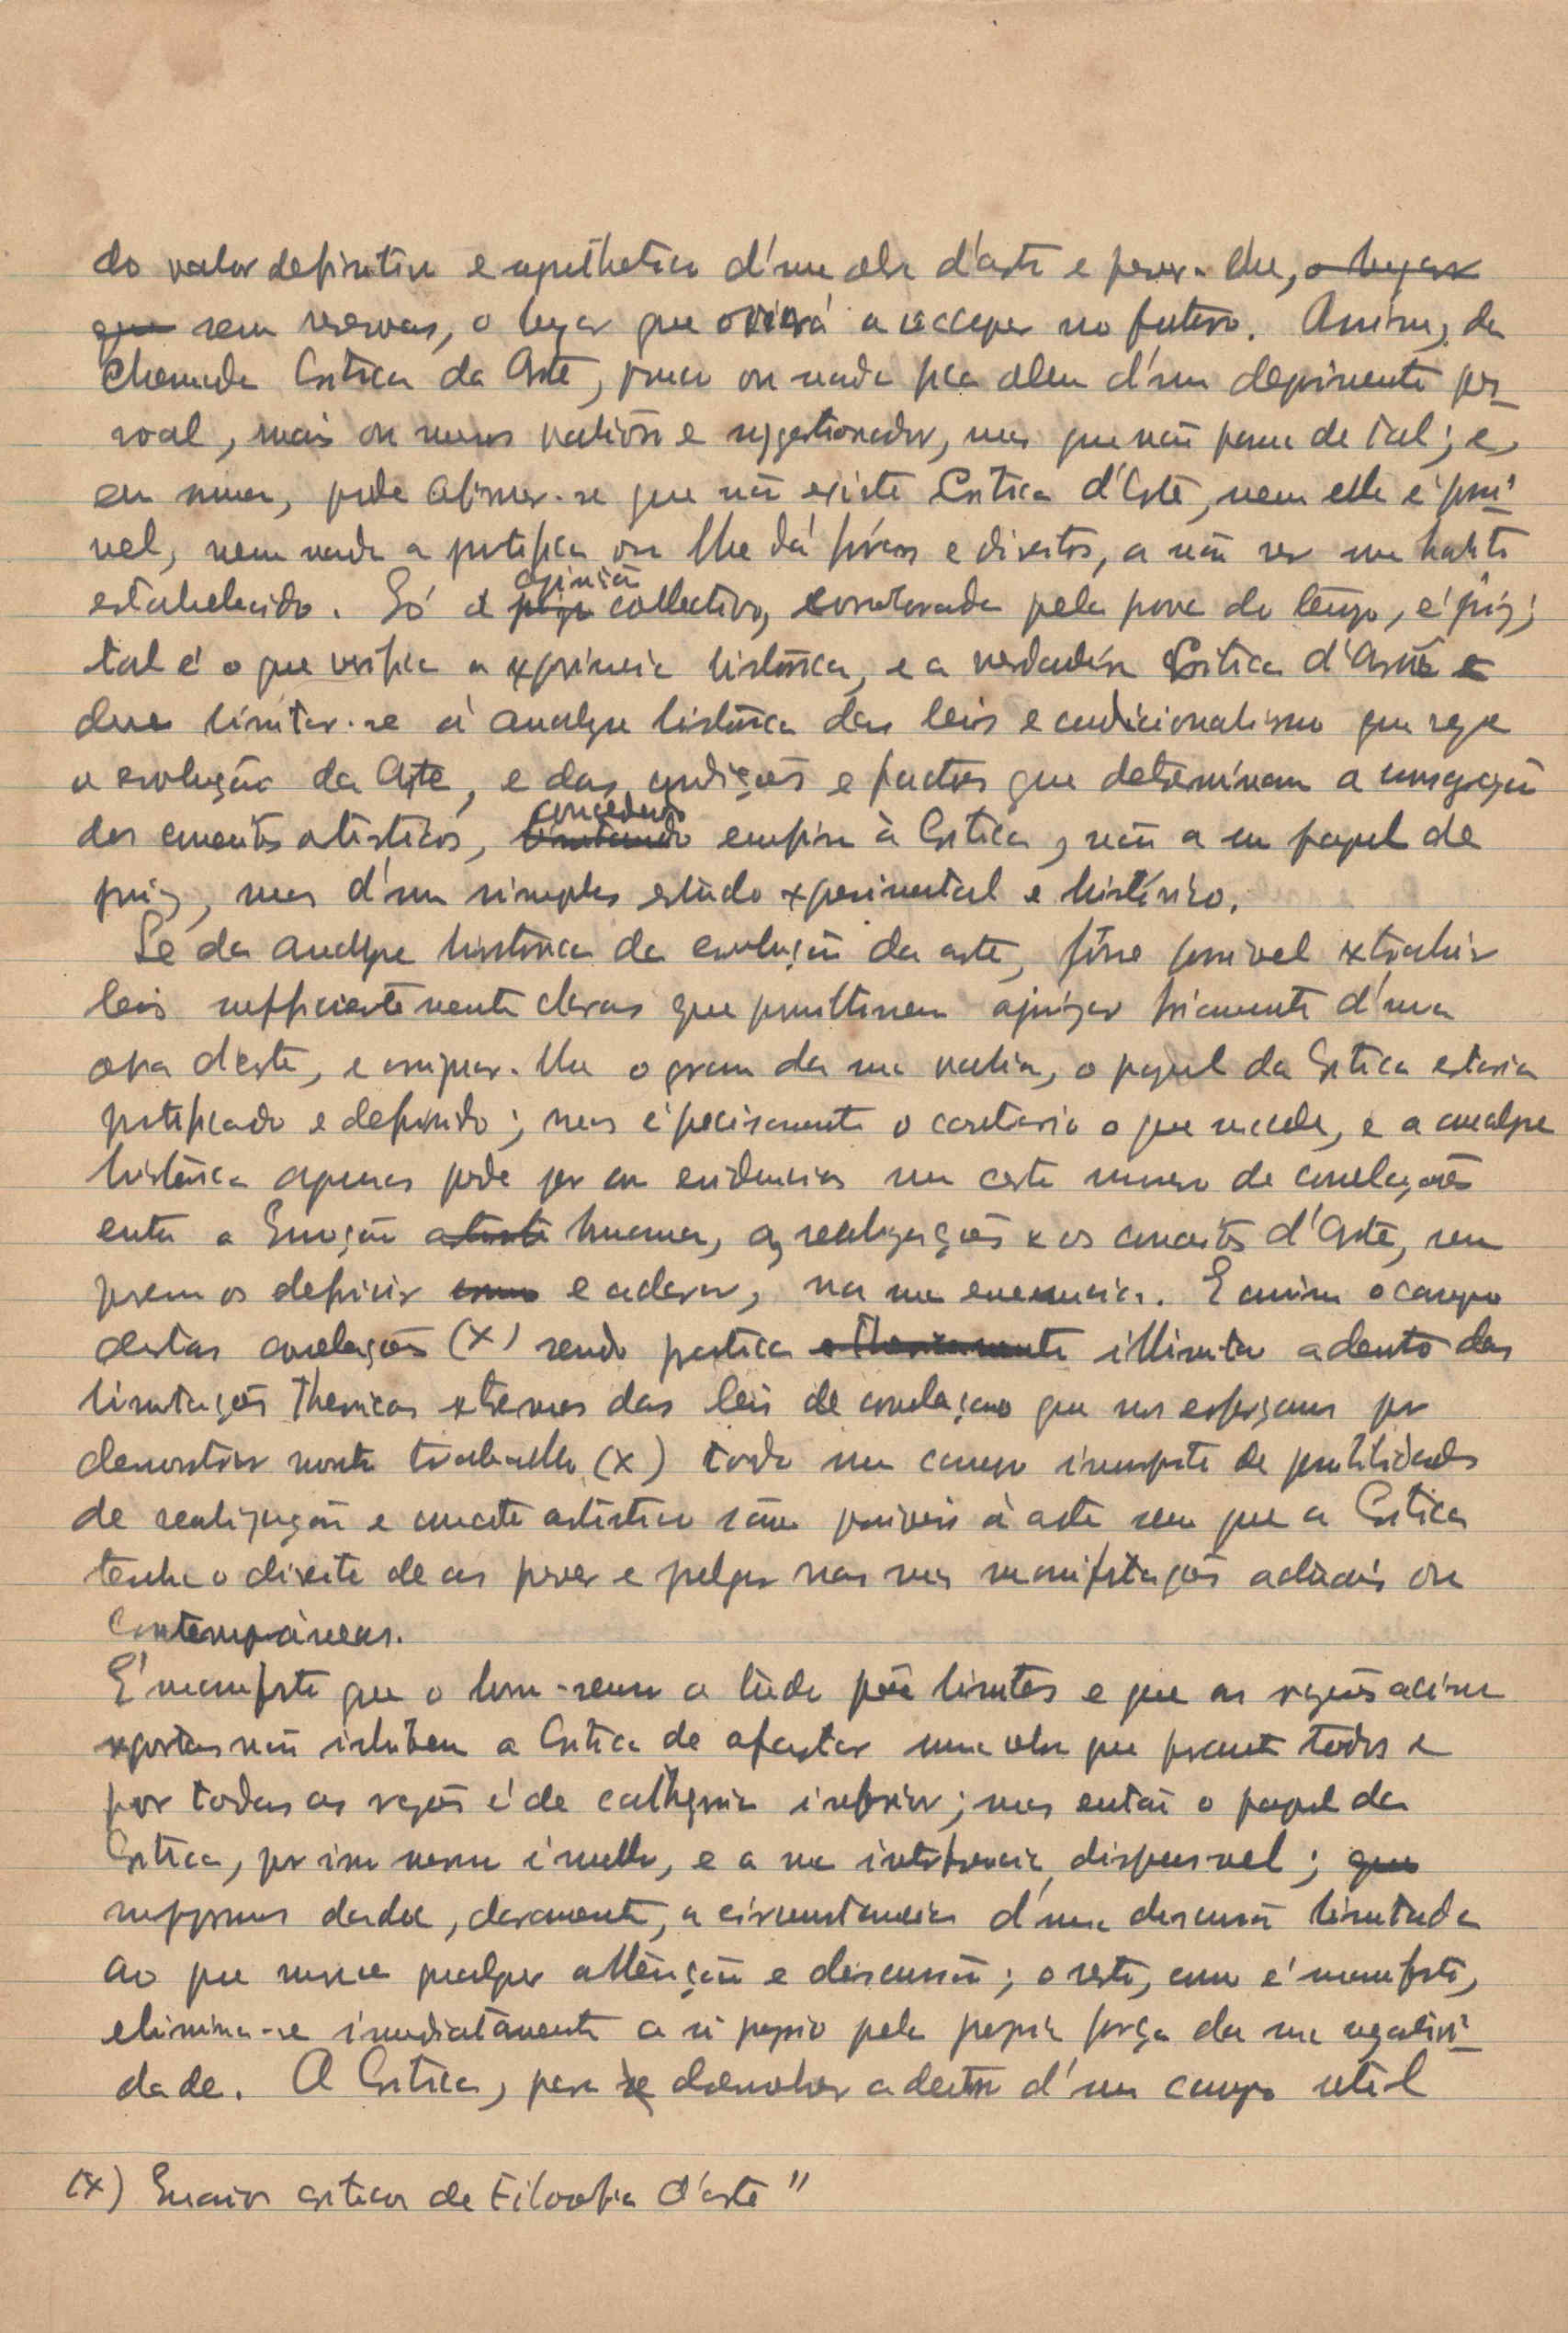 do valor definitivo e esthetico d'uma obra d'arte e prever-lhe, o lugar
que sem reservas, o lugar que o virá a occupar no futuro. Assim, da
chamada Critica da Arte, pouco ou nada fica alem d'um depoimento pes-
soal, mais ou menos valioso e suggestionador, mas que não passa de tal; e,
em summa, pode afirmar-se que não existe Critica d'Arte, nem ella é possi-
vel, nem nada a justifica ou lhe dá fóros e direitos, a não ser um habito
estabelecido. Só a opinião collectiva, corroborada pela prova do tempo, é juiz;
tal é o que verifica a experiencia historica, e a verdadeira Critica d'Arte
deve limitar-se á analyse historica das leis e condicionalismo que rege
a evolução da Arte, e das condições e factores que determinam a consagração
dos conceitos artisticos, concedendo emfim à Critica, não a um papel de
juiz, mas d'um simples estudo experimental e histórico.
Se da analyse historica da evolução da arte, fôsse possivel extrahir
leis sufficientemente claras que permittissem ajuizar friamente d'uma
obra d'arte, e comparar-lhe o grau da sua valia, o papel da Critica estaria
justificado e definido; mas é precisamente o contrario o que succede, e a analyse
historica apenas pode pôr em evidencia um certo numero de correlações
entre a Emoção humana, as realizações e os conceitos d'Arte, sem
porem os definir e aclarar, na sua essencia. E assim o campo
destas correlações (x) sendo pratica illimitado adentro das
limitações theoricas extremas das leis de correlação que nos esforçamos por
demonstrar noutro trabalho (x) todo um campo immenso de possibilidades
de realização e conceito artistico são possiveis á arte sem que a Critica
tenha o direito de as prever e julgar nas suas manifestações actuaes ou
contemporâneas.
É manifesto que o bom-senso a tudo põe limites e que as razões acima
expostas não inhibem a Critica de afastar uma obra que perante todos e
por todas as razões é de cathegoria inferior; mas então o papel da
Critica, por isso mesmo é nullo, e a sua interferencia dispensavel;
suppomos dada, claramente, a circumstancia d'uma discussão limitada
ao que merece qualquer attenção e discussão; o resto, como é manifesto,
elimina-se immediatamente a si proprio pela propria força da sua negativi-
dade. A Critica, para se desenvolver adentro d'um campo util
(x) Ensaios criticos de Filosofia d'arte"